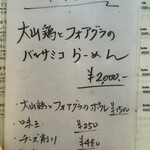 大山鶏とフォアグラの
バルサミコらーめん
¥2,000.-
・大山鶏とフォアグラボウル ¥1500
・味玉 ¥250
・チーズ削り ¥480